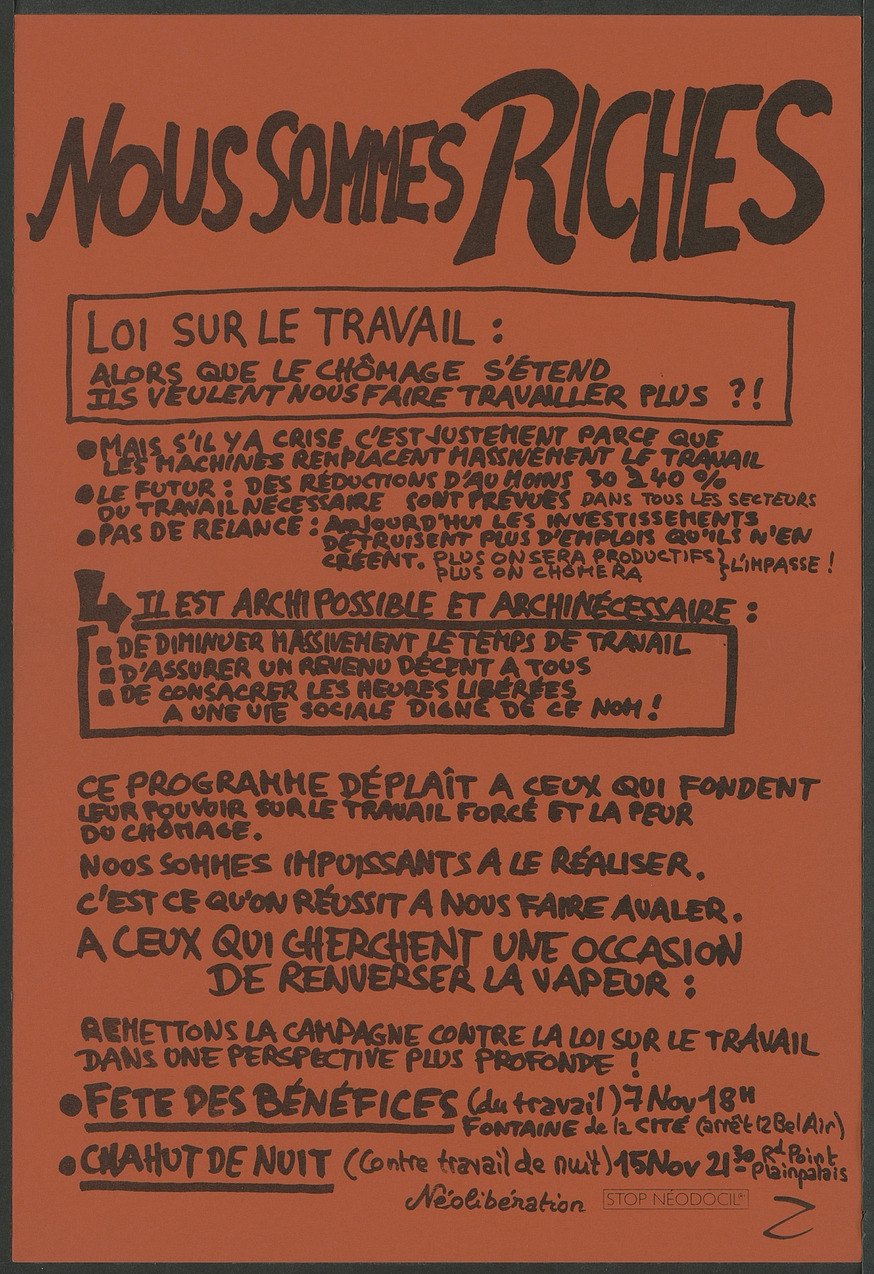 NOUS SOMMES RICHES
LOI SUR LE TRAVAIL :
ALORS QUE LE CHÔMAGE S'ÉTEND
ILS VEULENT NOUS FAIRE TRAVAILLER PLUS ?!
● MAIS S'IL Y A CRISE C'EST JUSTEMENT PARCE QUE
LES MACHINES REMPLACENT MASSIVEMENT LE TRAVAIL
● LE FUTUR : DES RÉDUCTIONS D'AU MOINS 30 à 40 %
DU TRAVAIL NÉCESSAIRE SONT PRÉVUES DANS TOUS LES SECTEURS
● PAS DE RELANCE : AUJOURD'HUI LES INVESTISSEMENTS
DÉTRUISENT PLUS D'EMPLOIS QU'ILS N'EN
CRÉENT. PLUS ON SERA PRODUCTIFS } L'IMPASSE !
PLUS ON CHÔMERA
↳ IL EST ARCHIPOSSIBLE ET ARCHINÉCESSAIRE :
▪ DE DIMINUER MASSIVEMENT LE TEMPS DE TRAVAIL
▪ D'ASSURER UN REVENU DÉCENT A TOUS
▪ DE CONSACRER LES HEURES LIBÉRÉES
A UNE VIE SOCIALE DIGNE DE CE NOM !
CE PROGRAMME DÉPLAÎT A CEUX QUI FONDENT
LEUR POUVOIR SUR LE TRAVAIL FORCÉ ET LA PEUR
DU CHÔMAGE.
NOUS SOMMES IMPUISSANTS A LE RÉALISER.
C'EST CE QU'ON RÉUSSIT A NOUS FAIRE AVALER.
A CEUX QUI CHERCHENT UNE OCCASION
DE RENVERSER LA VAPEUR :
REMETTONS LA CAMPAGNE CONTRE LA LOI SUR LE TRAVAIL
DANS UNE PERSPECTIVE PLUS PROFONDE !
● FETE DES BÉNÉFICES (du travail) 7 Nov 18H
FONTAINE de la CITÉ (arrêt 12 Bel Air)
● CHAHUT DE NUIT (Contre travail de nuit) 15 Nov 21 30 Rd Point
Plainpalais
Néolibération STOP NÉODOCIL